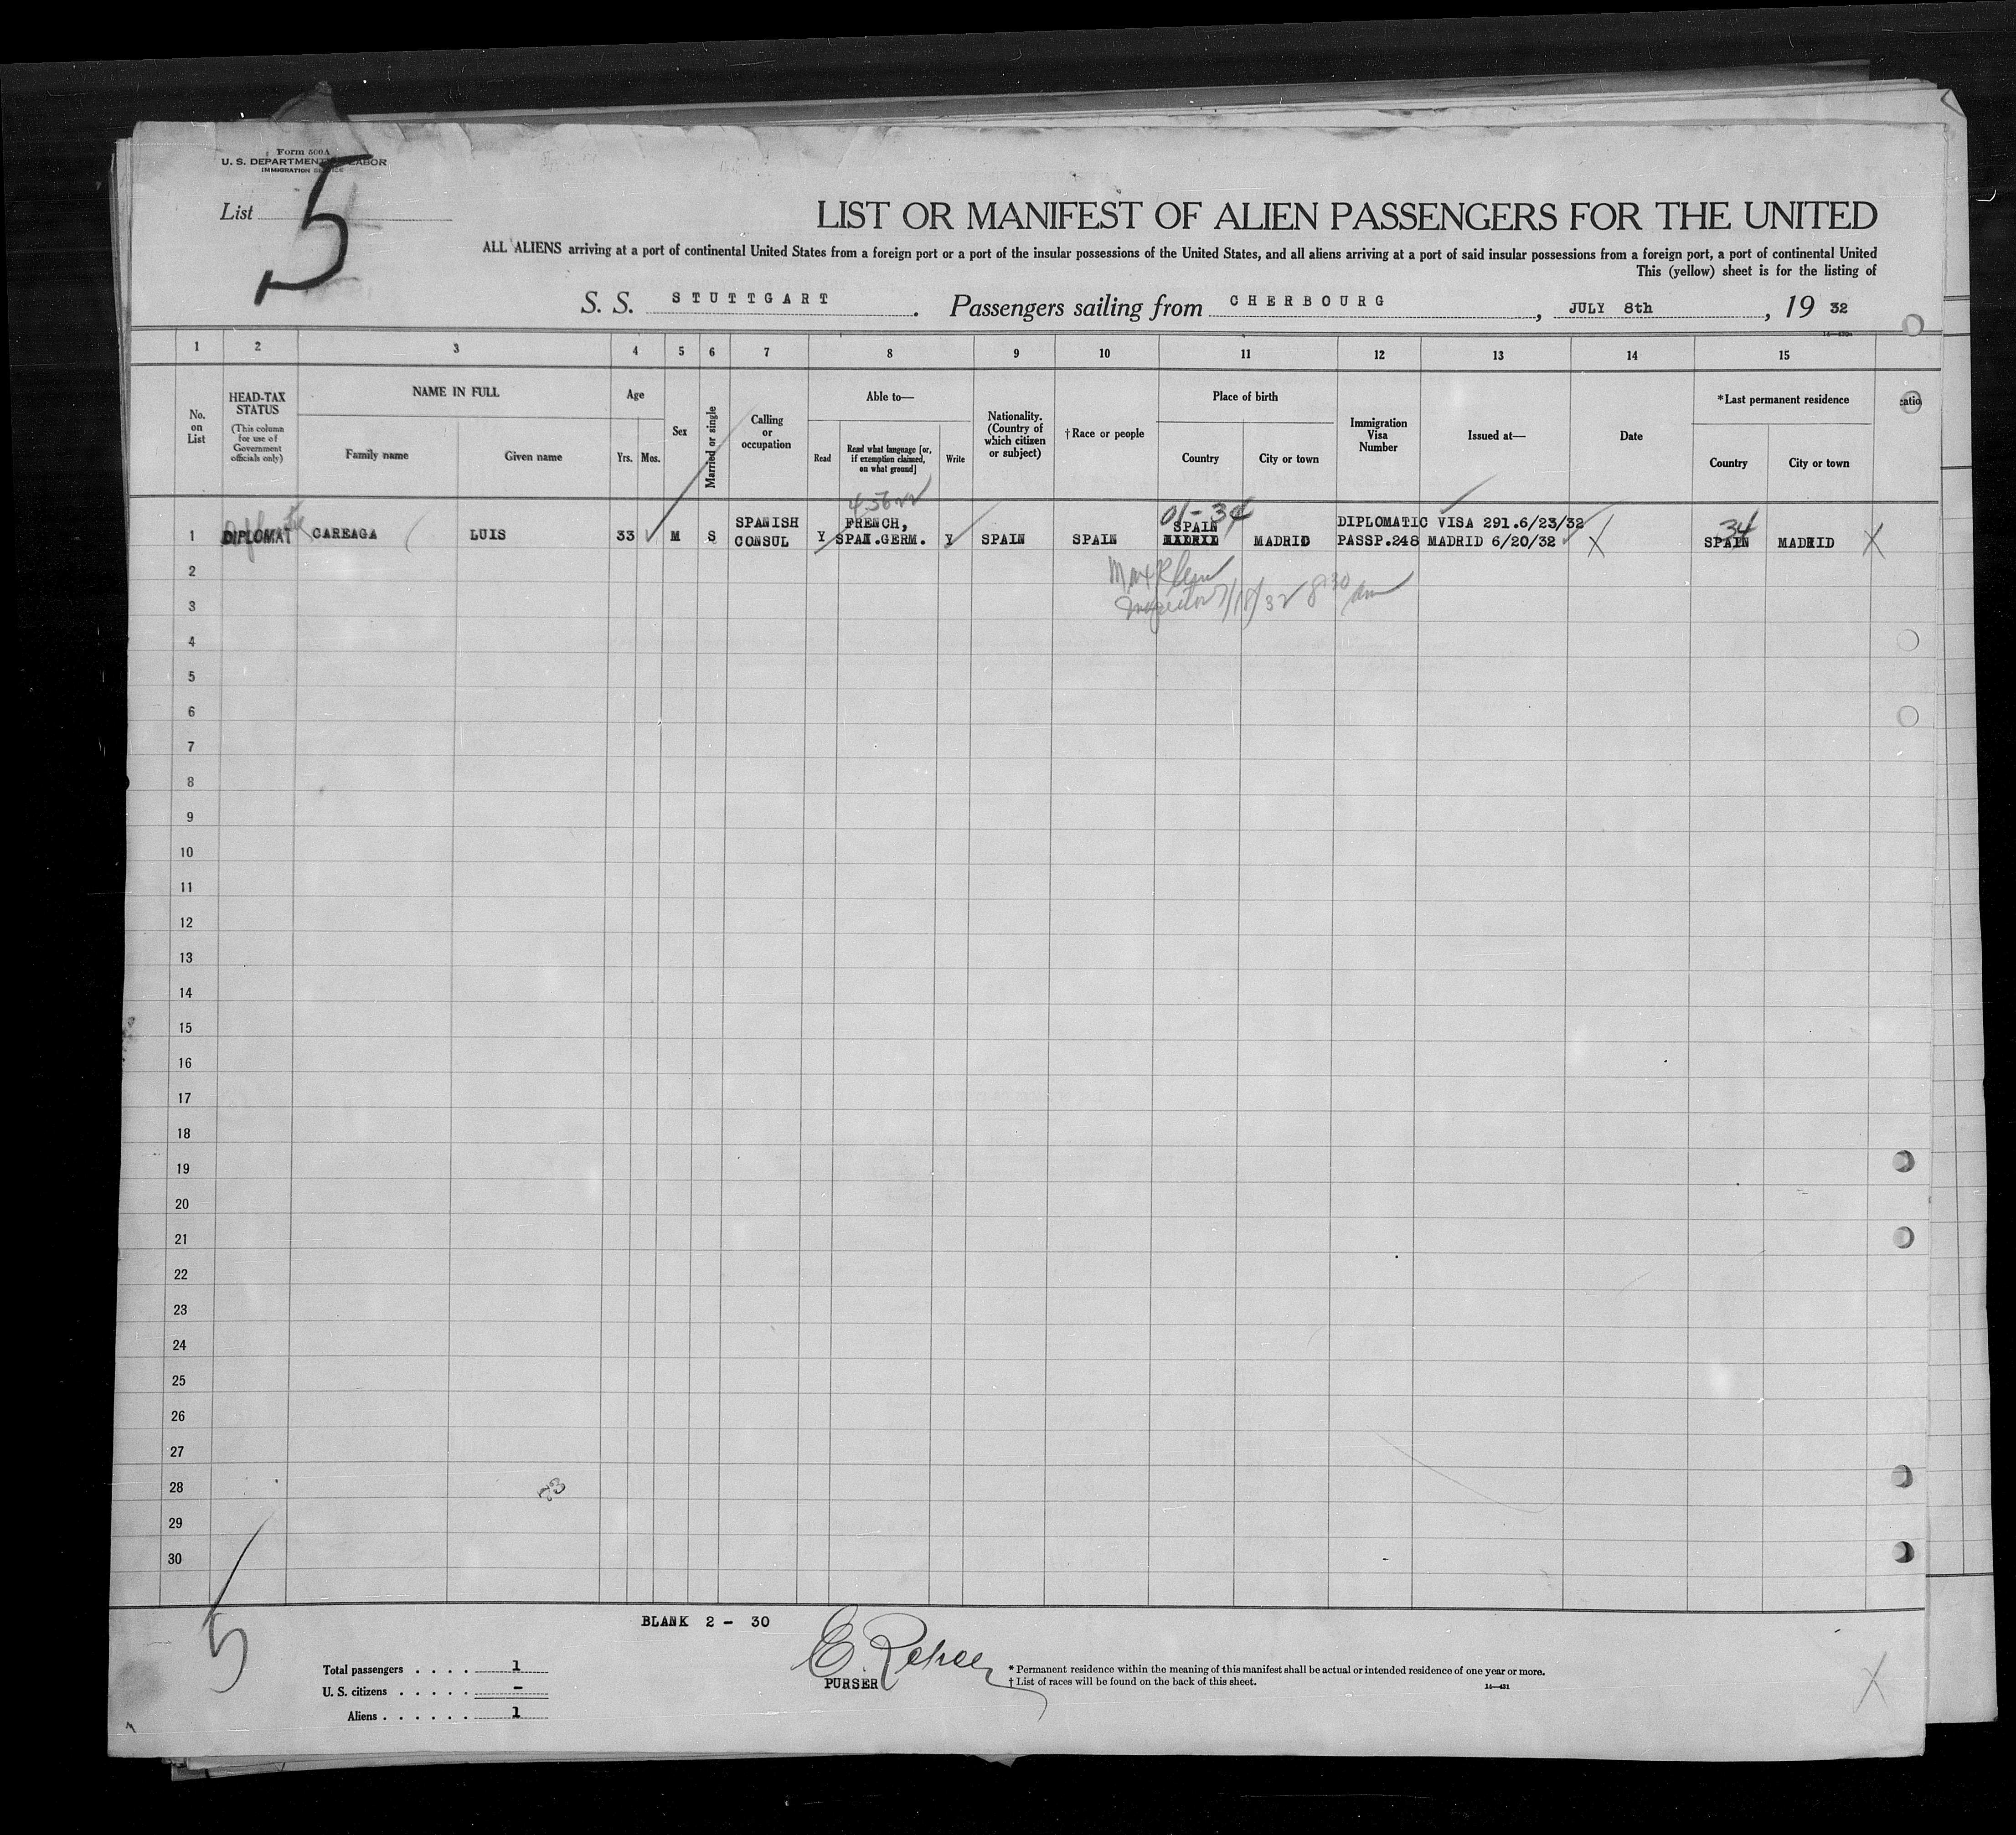 Form 500A
U. S. DEPARTMENT LABOR
IMMIGRATION SERVICE
List 5
LIST OR MANIFEST OF ALIEN PASSENGERS FOR THE UNITED
ALL ALIENS arriving at a port of continental United States from a foreign port or a port of the insular possessions of the United States, and all aliens arriving at a port of said insular possessions from a foreign port, a port of continental United
This (yellow) sheet is for the listing of
S. S. STUTTGART. Passengers sailing from CHERBOURG, JULY 8th, 19 32
1 2 3 4 5 6 7 8 9 10 11 12 13 14 15
No. on List
HEAD-TAX STATUS
(This column for use of Government officials only)
NAME IN FULL
Family name
Given name
Age
Yrs. Mos.
Sex
Married or single
Calling or occupation
Able to—
Read
Read what language [or, if exemption claimed, on what ground]
Write
Nationality. (Country of which citizen or subject)
†Race or people
Place of birth
Country
City or town
Immigration Visa Number
Issued at—
Date
*Last permanent residence
Country
City or town
01-34
1 DIPLOMAT CAREAGA LUIS 33 M S SPANISH CONSUL Y FRENCH, SPAN.GERM. Y SPAIN SPAIN SPAIN MADRID MADRID DIPLOMATIC VISA 291.6/23/32 PASSP.248 MADRID 6/20/32 X 34 SPAIN MADRID X
Inspector 7/18/32 8 30 am
2
3
4
5
6
7
8
9
10
11
12
13
14
15
16
17
18
19
20
21
22
23
24
25
26
27
28
29
30
BLANK 2 - 30
5
PURSER
Total passengers . . . . 1
U. S. citizens . . . . . -
Aliens . . . . . . 1
* Permanent residence within the meaning of this manifest shall be actual or intended residence of one year or more.
† List of races will be found on the back of this sheet.
14—431
X